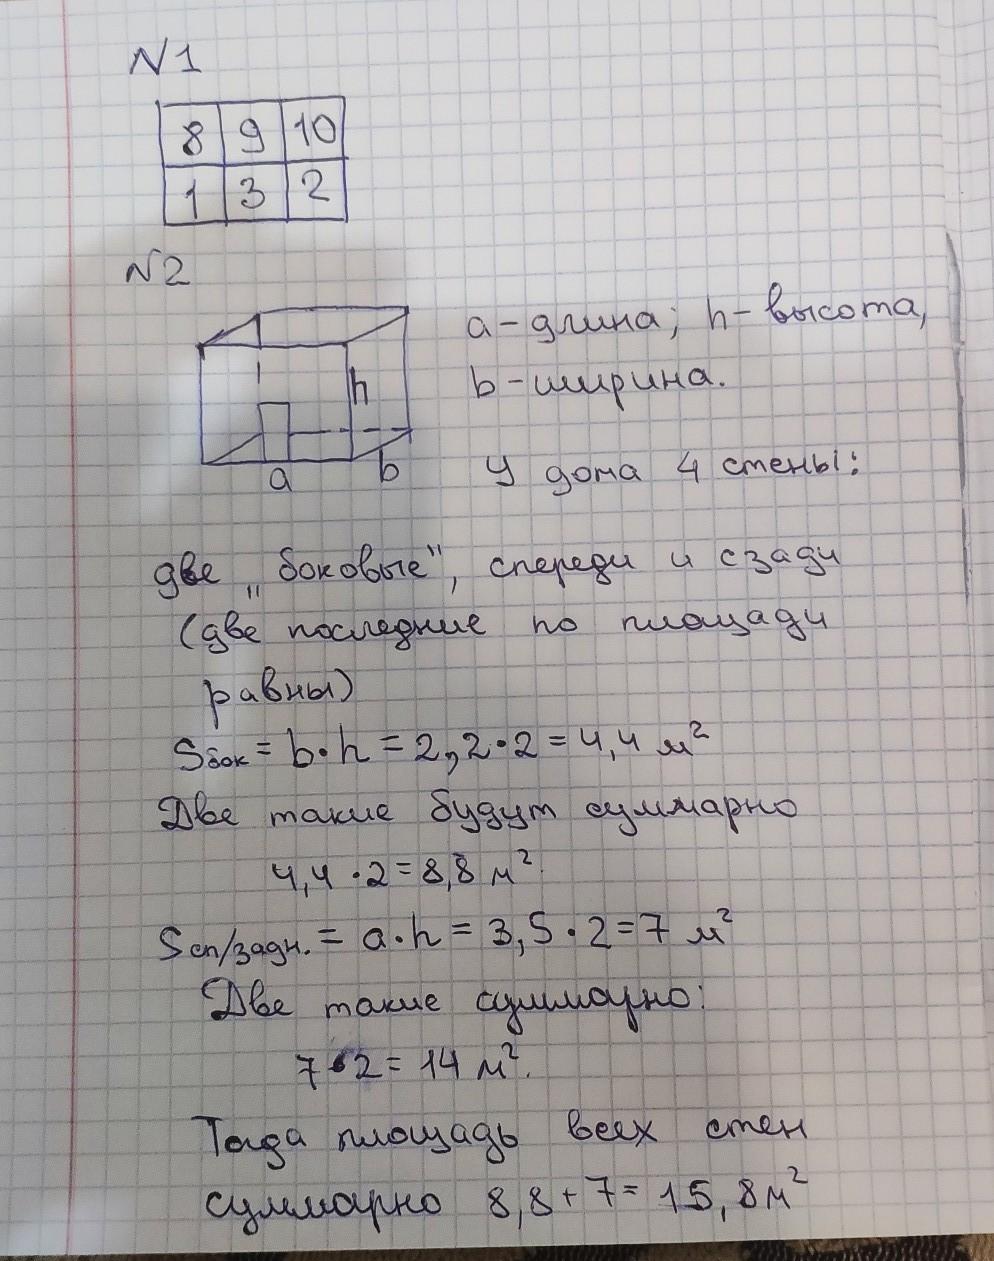 N1
8 9 10
1 3 2
N2
a - длина; h - высота,
b - ширина.
h
a b
У дома 4 стены:
две „боковые", спереди и сзади
(две последние по площади
равны)
Sбок = b·h = 2,2·2 = 4,4 м²
Две такие будут суммарно
4,4 · 2 = 8,8 м².
Sсп/задн. = a·h = 3,5·2 = 7 м²
Две такие суммарно:
7·2 = 14 м².
Тогда площадь всех стен
суммарно 8,8 + 7 = 15,8 м²